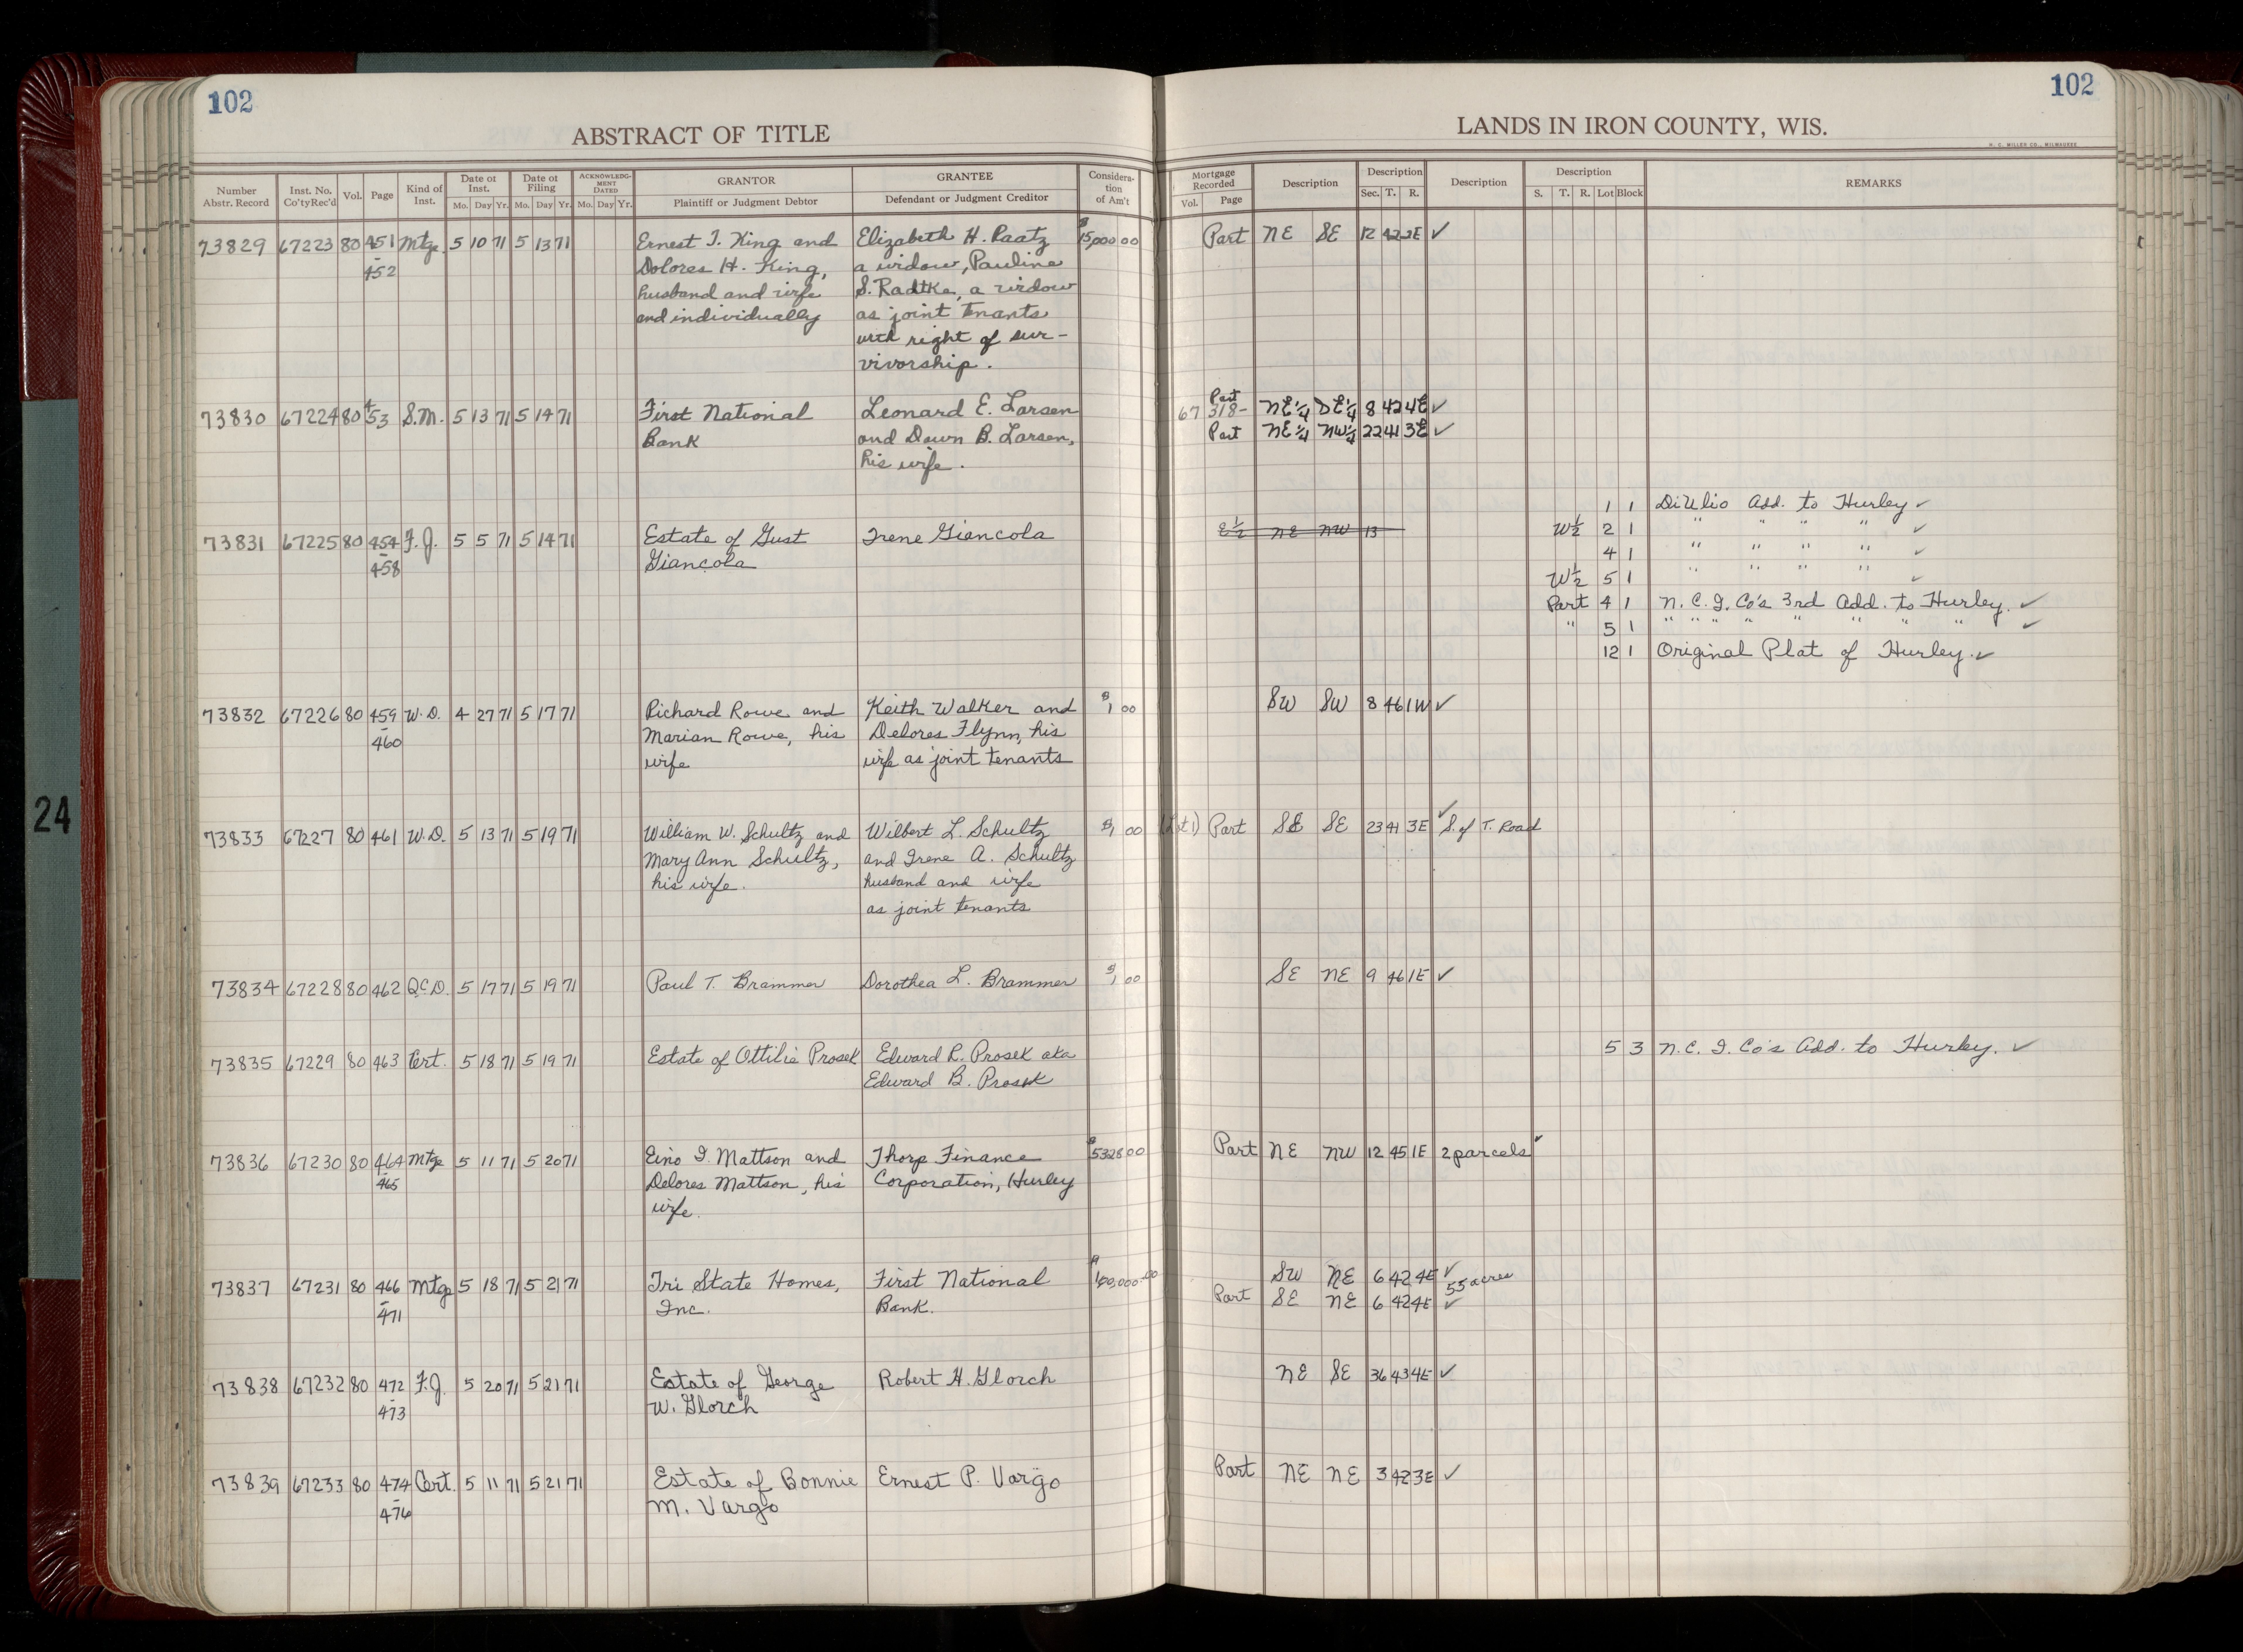 102
102
ABSTRACT OF TITLE
LANDS IN IRON COUNTY, WIS.
H. C. MILLER CO., MILWAUKEE
Number Abstr. Record | Inst. No. Co'ty Rec'd | Vol. | Page | Kind of Inst. | Date of Inst. Mo. Day Yr. | Date of Filing Mo. Day Yr. | ACKNOWLEDGMENT DATED Mo. Day Yr. | GRANTOR Plaintiff or Judgment Debtor | GRANTEE Defendant or Judgment Creditor | Consideration of Am't | Mortgage Recorded Vol. Page | Description | Description Sec. T. R. | Description | Description S. T. R. Lot Block | REMARKS
73829 67223 80 451 Mtge. 5 10 71 5 13 71 Ernest J. King and Elizabeth H. Raatz $15,000 00 Part NE SE 12 42 2E ✓
-452 Dolores H. King, a widow, Pauline
husband and wife S. Radtke, a widow
and individually as joint tenants
with right of sur-
vivorship.
Part
73830 67224 80 453 S.M. 5 13 71 5 14 71 First National Leonard E. Larsen 67 318- NE¼ SE¼ 8 42 4E ✓
Bank and Dawn B. Larsen, Part NE¼ NW¼ 22 41 3E ✓
his wife.
1 1 DiUlio Add. to Hurley ✓
73831 67225 80 454 F.J. 5 5 71 5 14 71 Estate of Gust Irene Giancola E½ NE NW 13 W½ 2 1 " " " " ✓
-458 Giancola 4 1 " " " " ✓
W½ 5 1 " " " " ✓
Part 4 1 N.C.I. Co's 3rd Add. to Hurley. ✓
" 5 1 " " " " " " " " ✓
12 1 Original Plat of Hurley. ✓
73832 67226 80 459 W.D. 4 27 71 5 17 71 Richard Rowe and Keith Walker and $1 00 SW SW 8 46 1W ✓
-460 Marian Rowe, his Delores Flynn, his
wife wife as joint tenants
73833 67227 80 461 W.D. 5 13 71 5 19 71 William W. Schultz and Wilbert L. Schultz $1 00 (Lot 1) Part SE SE 23 41 3E ✓ S. of T. Road
Mary Ann Schultz, and Irene A. Schultz
his wife. husband and wife
as joint tenants
73834 67228 80 462 Q.C.D. 5 17 71 5 19 71 Paul T. Brammer Dorothea L. Brammer $1 00 SE NE 9 46 1E ✓
73835 67229 80 463 Cert. 5 18 71 5 19 71 Estate of Ottilie Prosek Edward R. Prosek aka 5 3 N.C.I. Co's Add. to Hurley. ✓
Edward B. Prosek
73836 67230 80 464 Mtge 5 11 71 5 20 71 Eino I. Mattson and Thorp Finance $5328 00 Part NE NW 12 45 1E 2 parcels ✓
-465 Delores Mattson, his Corporation, Hurley
wife.
73837 67231 80 466 Mtge 5 18 71 5 21 71 Tri State Homes, First National SW NE 6 42 4E ✓ 55 acres
-471 Inc. Bank. Part SE NE 6 42 4E ✓
73838 67232 80 472 F.J. 5 20 71 5 21 71 Estate of George Robert H. Glorch NE SE 36 43 4E ✓
-473 W. Glorch
73839 67233 80 474 Cert. 5 11 71 5 21 71 Estate of Bonnie Ernest P. Vargo Part NE NE 3 42 3E ✓
-476 M. Vargo
24